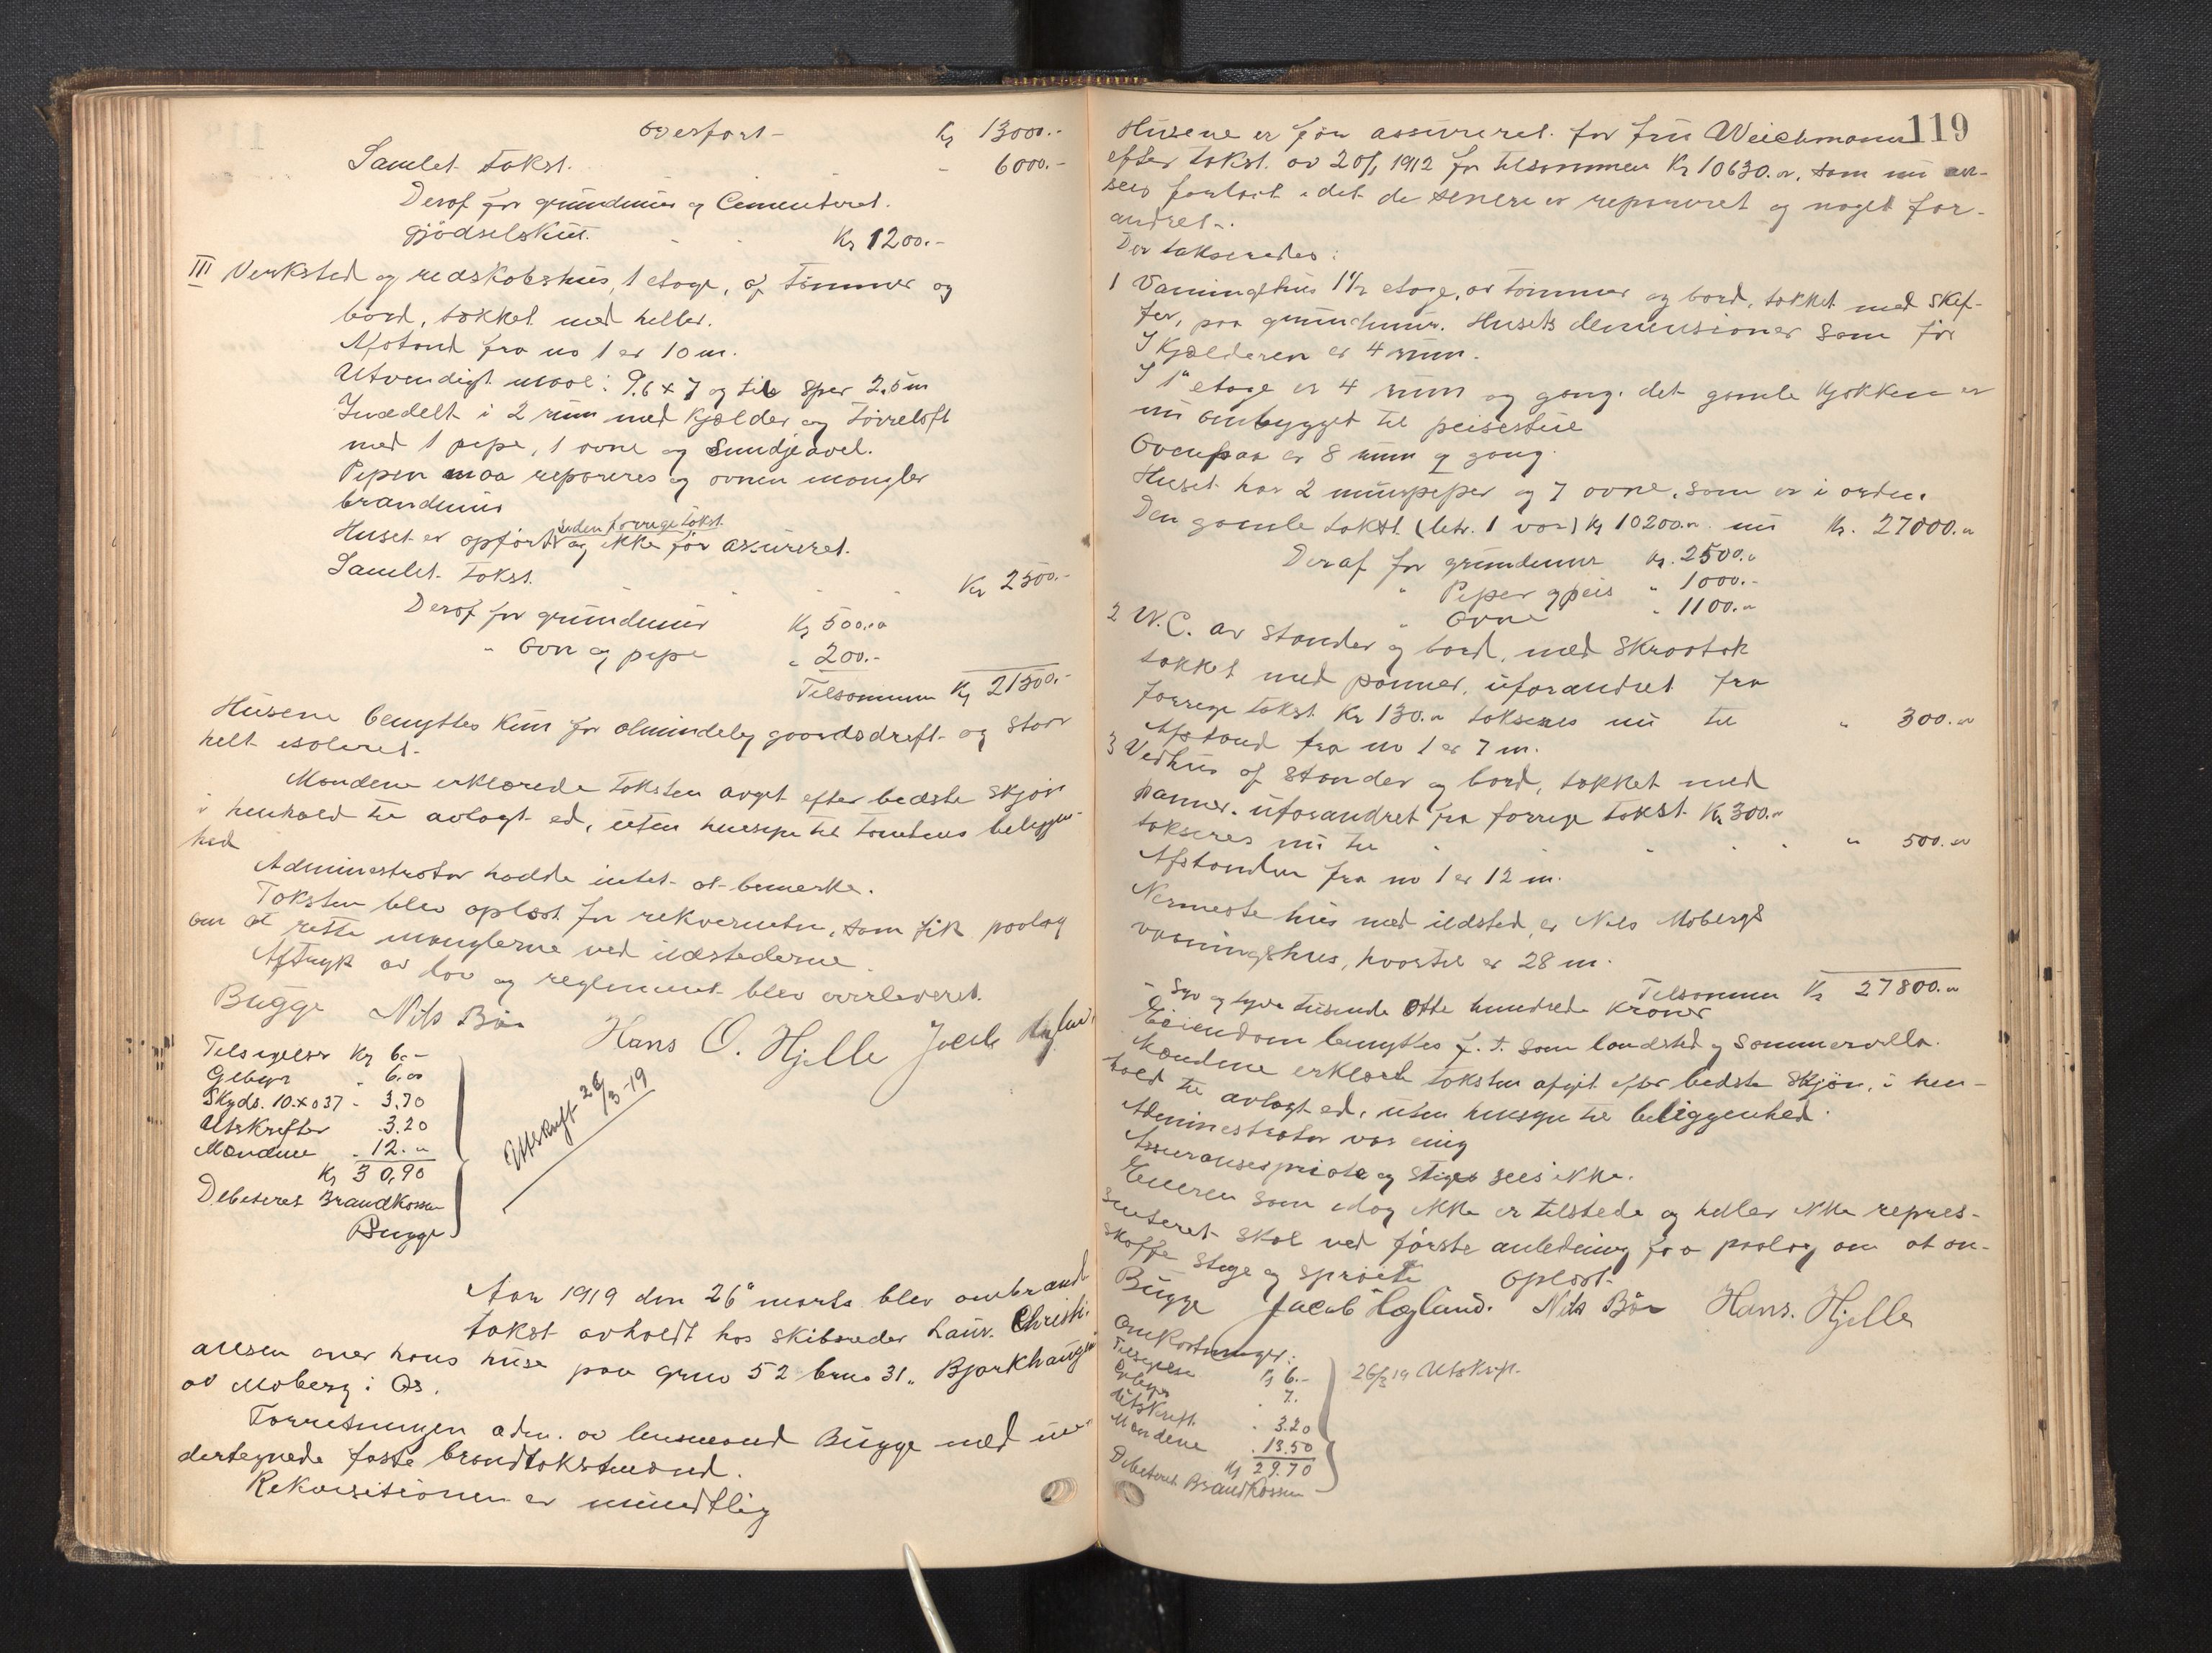 Overført - Kr 13000.-
Samlet takst. - 6000.-
Deraf for grundmur og Cementeret
gjödselskur. - - Kr 1200.-
III Verksted og redskabshus, 1 etage, af tømmer og
bord, tækket med heller.
Afstand fra no 1 er 10 m.
Utvendigt maal: 9.6 x 7 og til sper 2,5 m
Inddelt i 2 rum med kjælder og tørreloft
med 1 pipe, 1 ovne og
Pipen maa repareres og ovnen mangler
brandmur
Huset er opført siden forrige takst og ikke før assureret.
Samlet takst. " " " Kr 2500.-
Deraf for grundmur Kr 500.00
" Ovn og pipe " 200.-
Tilsammen Kr 21500.-
Husene benyttes kun for almindelig gaardsdrift og staar
helt isoleret.
Mændene erklærede taksten avgit efter bedste skjøn
i henhold til avlagt ed, uten hensyn til tomtens beliggen-
hed
Administrator hadde intet at bemerke.
Taksten blev oplæst for rekvirenten, som fik paalæg
om at rette manglerne ved ildstederne.
Aftryk av lov og reglement blev overleveret.
Bugge Nils Böe Hans O. Hjelle Jacob Høgland
Tilsigelser Kr 6.-
Gebyr " 6.00
Skyds. 10 x 0 37 - 3,70
Utskrifter .3.20
Mændene . 12.00
Kr 30,90
Debiteret Brandkassen
Bugge
Utskrift 26/3-19
Aar 1919 den 26de marts blev ombrand
takst avholdt hos skibsreder Laur. Christi-
ansen over hans huse paa gno 52 bno 31 "Bjørkhaugen
av Moberg i Os.
Forretningen adm. av lensmand Bugge med un-
dertegnede faste brandtakstmænd.
Rekvisitionen er mundtlig
119
Husene er før assureret for fru Weichmann
efter takst av 20/1 1912 for tilsammen Kr 10630.00, som nu an-
sees forlavt idet de senere er repareret og noget for-
andret.
Der takseredes:
1 Vaaningshus 1 1/2 etage, av tømmer og bord, tækket med skif-
fer, paa grundmur. Husets dimensioner som før
I Kjælderen er 4 rum.
I 1ste etage er 4 rum og gang. det gamle kjøkken er
nu ombygget til peisestue
Ovenpaa er 8 rum og gang.
Huset har 2 murpiper og 7 ovne, som er i orden.
Den gamle takst (litr. 1 var) Kr 10200.00 nu Kr. 27000.00
Deraf for grundmur Kr. 2500.00
" Piper og peis " 1000.-
" Ovne " 1100.00
2 W.C. av stander og bord, med skraatak
tækket med panner, uforandret fra
forrige takst Kr 130.00 takseres nu til " 300.00
Afstand fra no 1 er 7 m.
3 Vedhus af stander og bord, tækket med
panner. uforandret fra forrige takst Kr 300.00
takseres nu til " " " " 500.00
Afstanden fra no 1 er 12 m.
Nermeste hus med ildsted, er Nils Mobergs
vaaningshus, hvortil er 28 m.
Tilsammen Kr 27800.00
- Syv og tyve tusende Otte hundrede Kroner
Eiendom benyttes f. t. som landsted og sommervilla.
Mændene erklærte taksten afgit efter bedste skjøn, i hen-
hold til avlagt ed, uten hensyn til beliggenhed.
Administrator var enig
Assuransesprøite og stiger sees ikke.
Eieren som idag ikke er tilstede og heller ikke repres-
enteret skal ved første anledning faa paalæg om at an-
skaffe stige og sprøite Oplæst
Bugge Jacob Høgland. Nils Böe Hans. Hjelle
Omkostninger:
Tilsigelse Kr 6.-
Gebyr . 7.
Utskrift . 3.20
Mændene . 13.50
Kr 29.70
Debiteret Brandkassen
26/3 19 Utskrift.